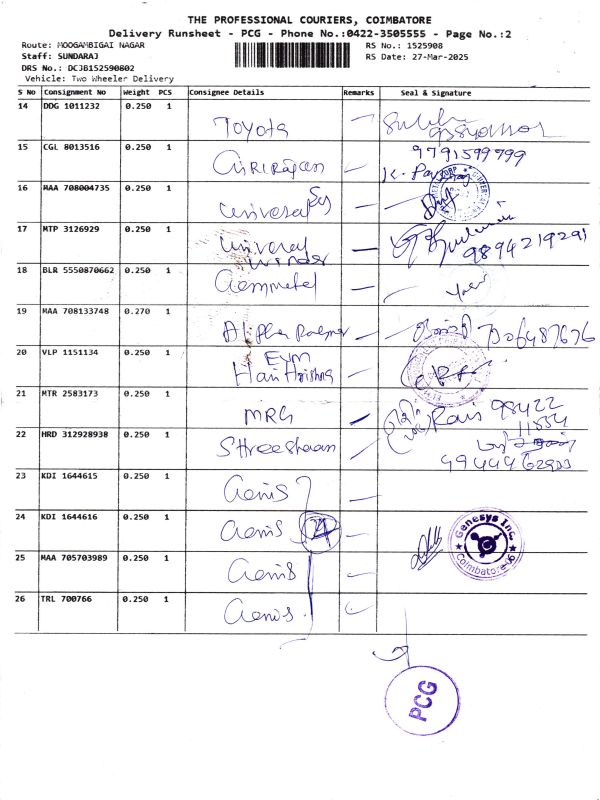 THE PROFESSIONAL COURIERS, COIMBATORE
Delivery Runsheet - PCG - Phone No.:0422-3505555 - Page No.:2
Route: MOOGAMBIGAI NAGAR
RS No.: 1525908
Staff: SUNDARAJ
RS Date: 27-Mar-2025
DRS No.: DCJB152590802
Vehicle: Two Wheeler Delivery
S No Consignment No Weight PCS Consignee Details Remarks Seal & Signature
14 DDG 1011232 0.250 1
Toyota
15 CGL 8013516 0.250 1
9791599799
16 MAA 708004735 0.250 1
universal
17 MTP 3126929 0.250 1
universal
9894219291
18 BLR 5550870662 0.250 1
19 MAA 708133748 0.270 1
Alpha Palmer
20 VLP 1151134 0.250 1
EYM
Hari Krishna
21 MTR 2583173 0.250 1
MRG
98422
11554
22 HRD 312928938 0.250 1
Shreeshaan
23 KDI 1644615 0.250 1
Genis
24 KDI 1644616 0.250 1
Genis 4
Genesys Inc.
Coimbatore-06
25 MAA 705703989 0.250 1
Genis
26 TRL 700766 0.250 1
Genis
PCG